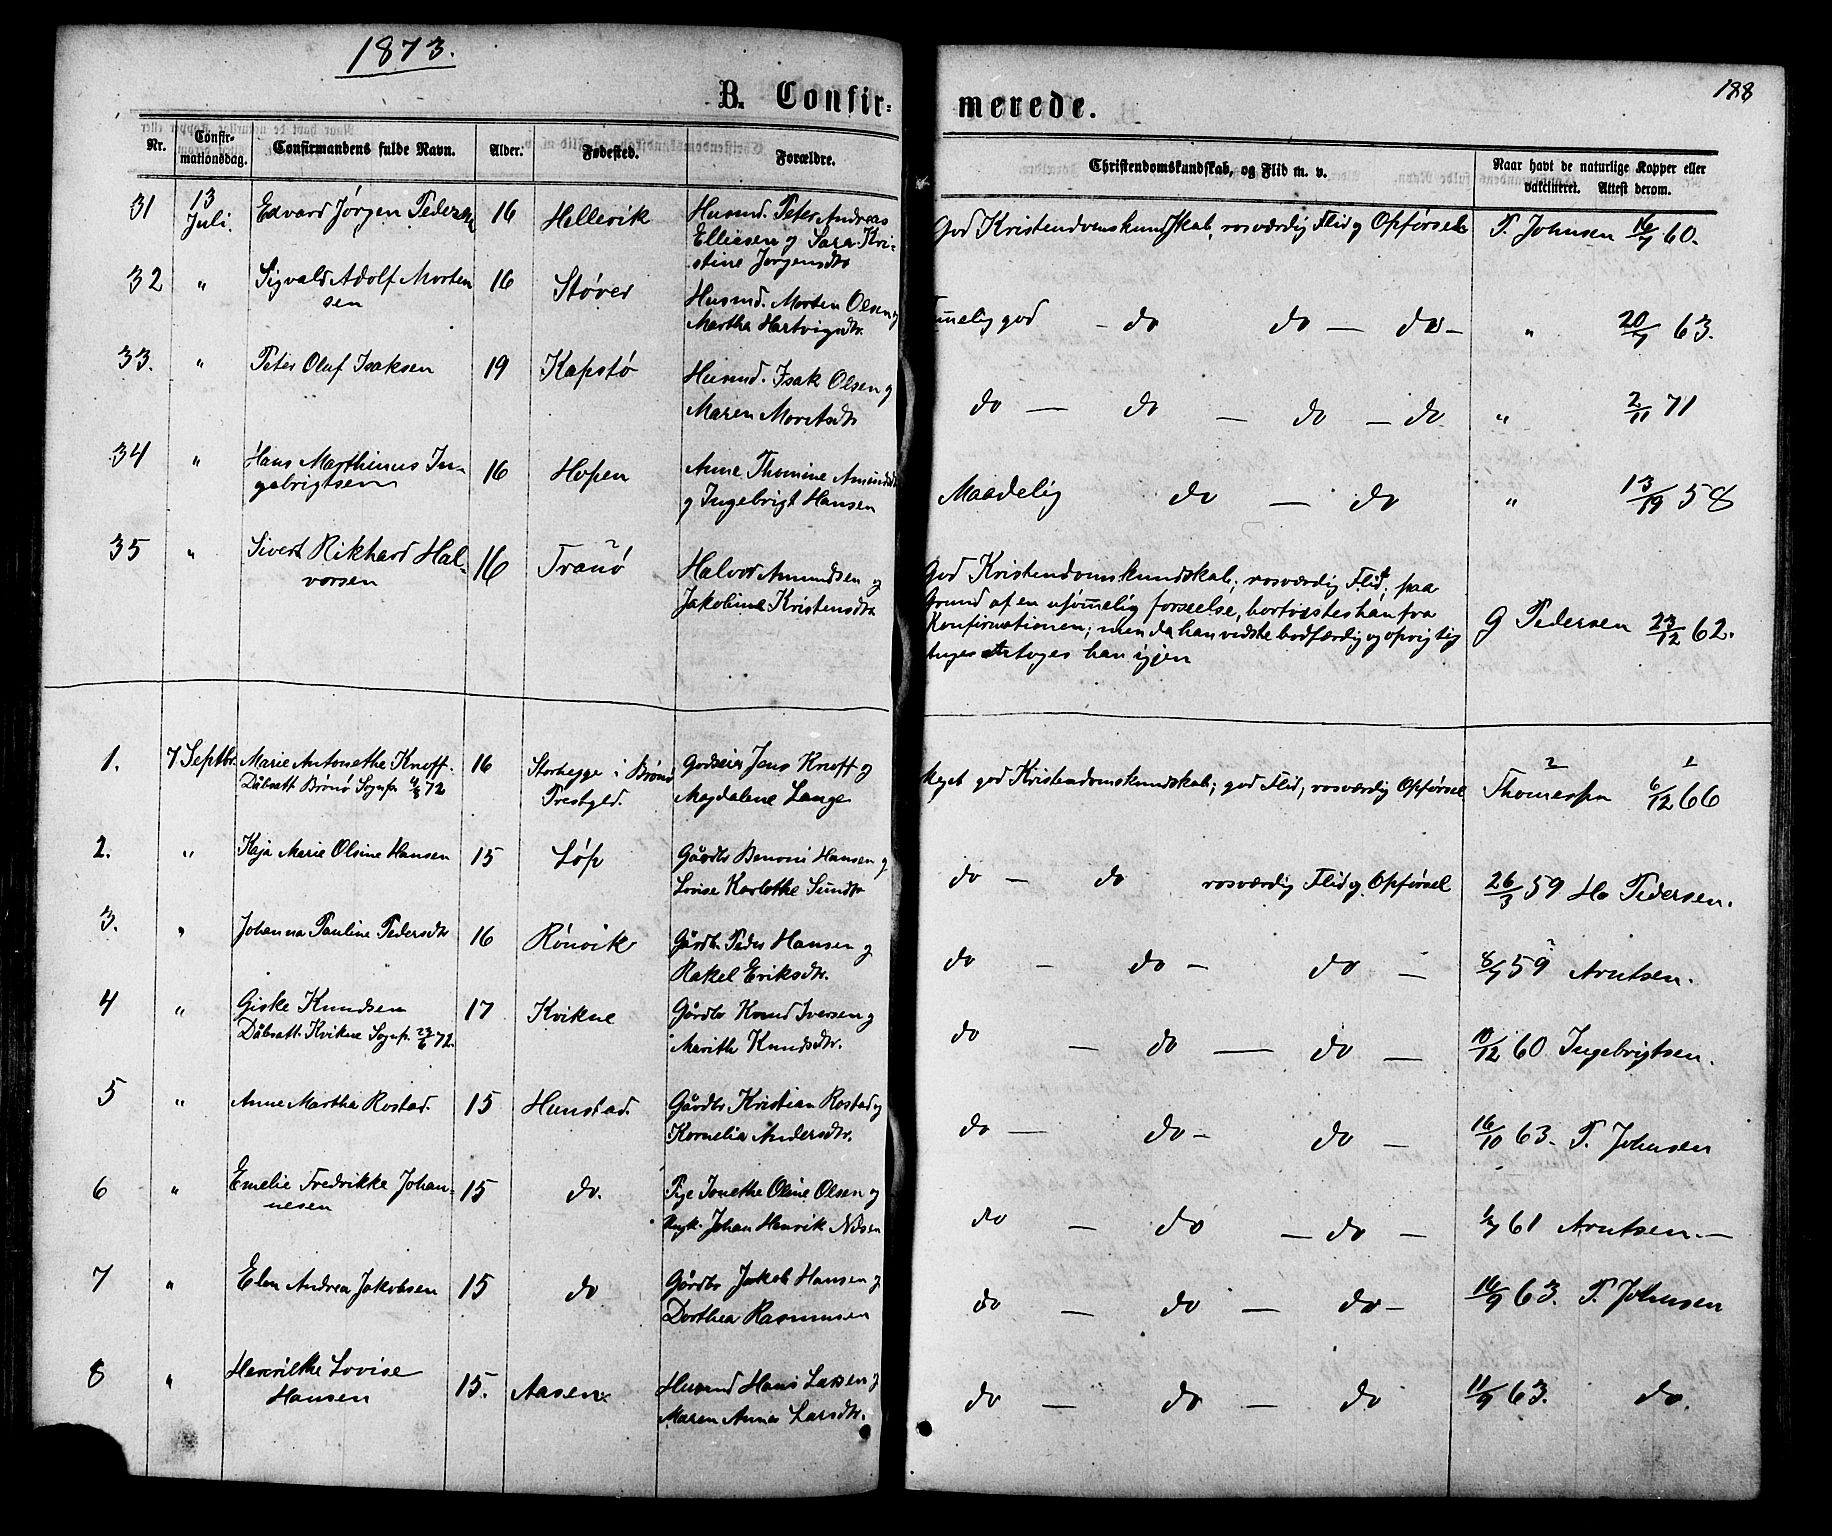 1873.
188
B. Confirmerede.
Nr. Confirmationsdag. Confirmandens fulde Navn. Alder. Fødested. Forældre. Christendomskundskab, og Flid m. v. Naar havt de naturlige Kopper eller vaktineret. Attest derom.
31 13 Juli. Edvard Jørgen Pedersen 16 Hellevik Husmd. Peter Andreas God Kristendomskundskab, rosværdig Flid og Opførsel P. Johnsen 16/7 60.
Elliesen og Sara Kri-
stine Jørgensdtr
32 " Sigvald Adolf Morten 16 Støver Husmd. Morten Olsen og Temmelig god - do do - do - " 20/7 63.
sen Martha Hartvigsdtr.
33. " Peter Oluf Isaksen 19 Kapstø Husmd. Isak Olsen og do - do - do - do " 2/11 71
Maren Moretsdtr
34 " Hans Marthinus In- 16 Hopen Anne Thomine Amundsdtr Maadelig do - do " 58
gebrigtsen og Ingebrigt Hansen
35 " Sivert Rikhard Hal- 16 Tranø Halvor Amundsen og God Kristendomskundskab; rosværdig Flid; paa
vorsen Jakobine Kristensdtr Grund af en usømmelig forseelse, bortvistes han fra
Konfirmationen; men da han viste bodfærdig og oprigtig G Pedersen 23/12 62.
antoges han igjen
1. 7 Septbr. Marie Antonethe Knoff. 16 Storhegge i Brønø Godseier Jens Knoff og Meget god Kristendomskundskab; god Flid, rosværdig Opførsel 6/12 66
Dåbsatt. Brønø Sognepr. 72 Prestgled. Magdalene Lange
2. " Kaja Marie Olsine Hansen 15 Løp Gårdbr Benoni Hansen og do - do rosværdig Flid og Opførsel 26/3 59 H Pedersen.
Lovise Karlotthe Sundtr
3. " Johanna Pauline Pedersdtr 16 Rønvik Gårdbr. Peder Hansen og do - do - do - 8/7 59 Arntsen.
Rakel Eriksdtr.
4 " Giske Knudsen 17 Kvikne Gårdbr Knud Iversen og do - do - do - 10/12 60 Ingebrigtsen.
Dåbsatt. Kvikne Sognepr. 23/6 72. Marith Knudsdtr.
5 " Anne Martha Rostad. 15 Hunstad. Gårdbr Kristian Rostad og do - do - do - 16/10 63. P. Johnsen
Kornelia Andersdtr.
6 " Emelie Fredrikke Johan- 15 do. Pige Jonethe Oline Olsen og do - do - do - 61 Arntsen. -
nesen Ungk. Johan Henrik Nilsen
7 " Elen Andrea Jakobsen 15 do Gårdbr Jakob Hansen og do - do - do - 16/9 63. P. Johnsen
Dorthea Rasmussen
8 " Henrikke Lovise 15. Aasen Husmd Hans Larsen og do - do - do 11/9 63. do.
Hansen Maren Anna Larsdtr.